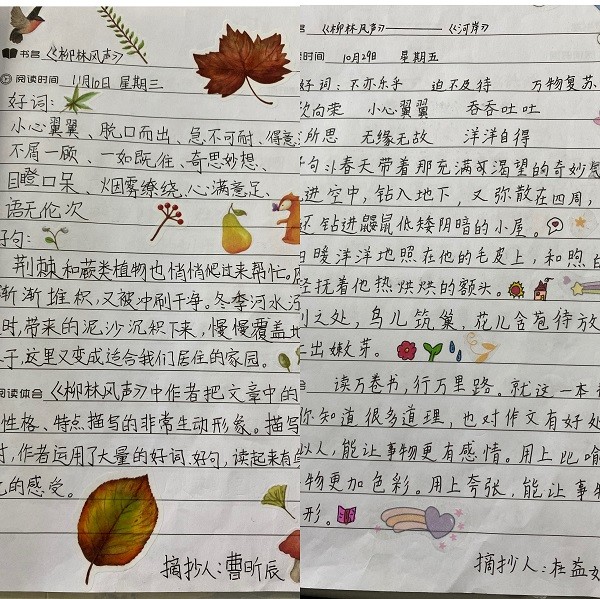 书名 《柳林风声》
阅读时间 11月10日 星期三
好词:
小心翼翼、脱口而出、急不可耐、得意
不屑一顾、一如既往、奇思妙想、
目瞪口呆、烟雾缭绕、心满意足、
语无伦次
好句:
荆棘和蕨类植物也悄悄爬过来帮忙。
渐渐堆积,又被冲刷干净。冬季河水
时,带来的泥沙沉积下来,慢慢覆盖
于,这里又变成适合我们居住的家园。
阅读体会 《柳林风声》中作者把文章中的
性格、特点描写的非常生动形象。描写
时,作者运用了大量的好词、好句,读起来有
的感受。
摘抄人:曹昕辰
名 《柳林风声》————《河岸》
时间 10月29日 星期五
好词:不亦乐乎 迫不及待 万物复苏
欣向荣 小心翼翼 吞吞吐吐
所思 无缘无故 洋洋自得
句:春天带着那充满可渴望的奇妙气
进空中,钻入地下,又弥散在四周,
还钻进鼹鼠低矮阴暗的小屋。
日暖洋洋地照在他的毛皮上,和煦的
轻抚着他热烘烘的额头。
到之处,鸟儿筑巢,花儿含苞待放
出嫩芽。
会 读万卷书,行万里路。就这一本
你知道很多道理,也对作文有好处
以人,能让事物更有感情。用上比喻
物更加色彩。用上夸张,能让事
形。
摘抄人:杜益